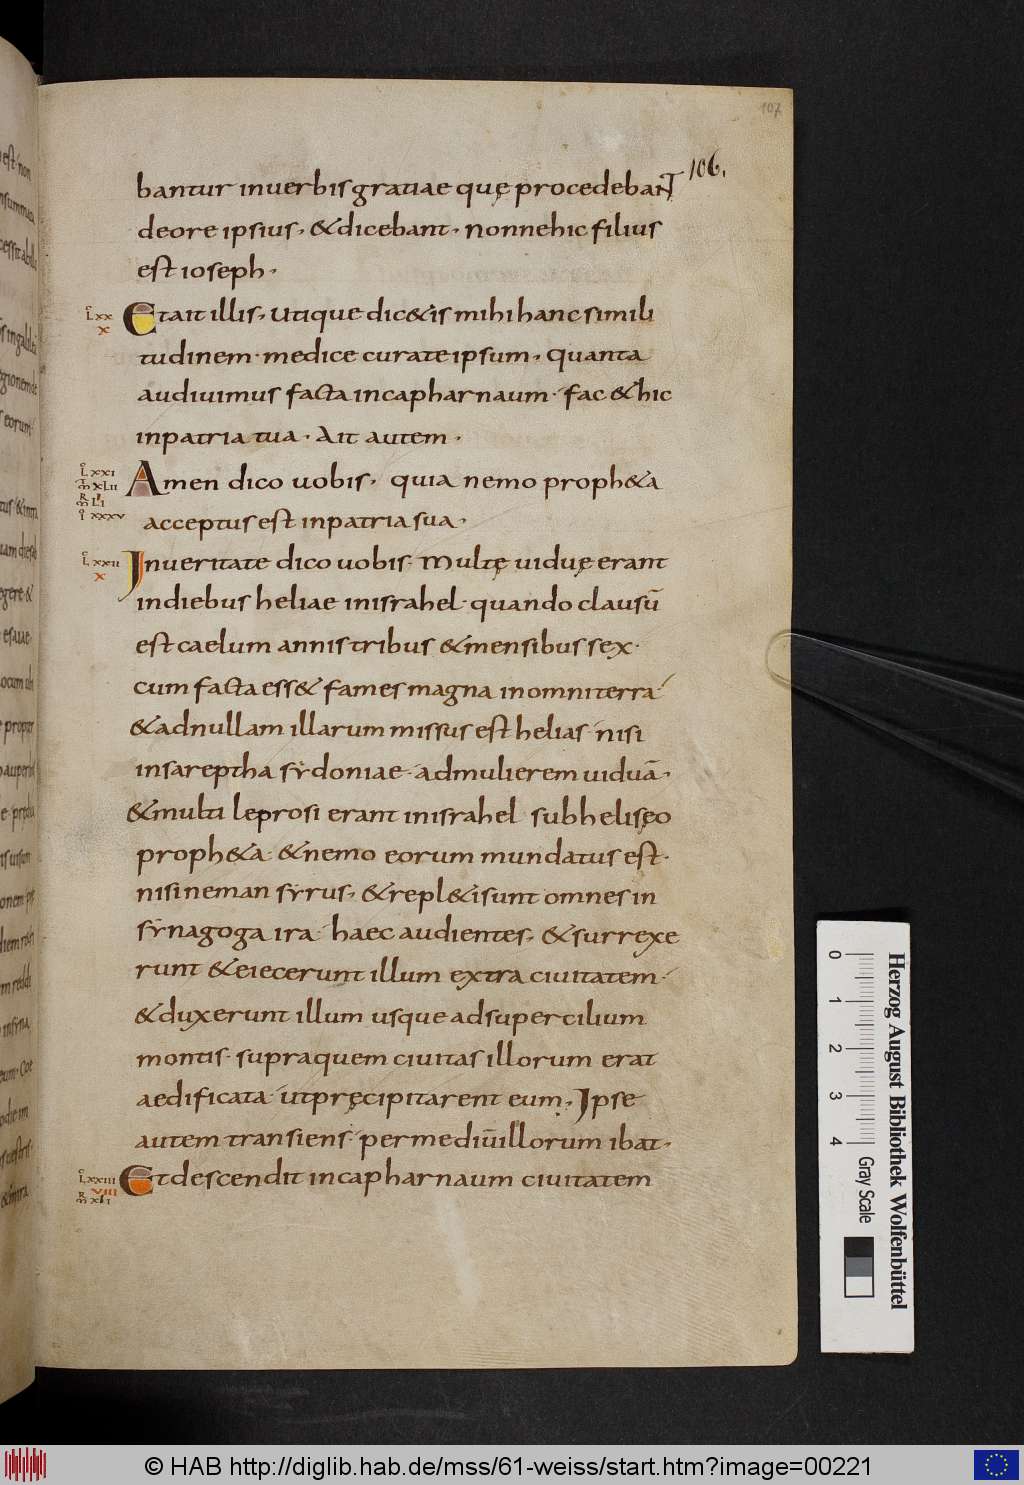 107
106.
bantur inuerbis gratiae quę procedebant
deore ipsius, &dicebant, nonnehic filius
est ioseph,
Lxx
x
Etait illis, utique dic&is mihi hanc simili
tudinem· medice curate ipsum, quanta
audiuimus facta incapharnaum· fac &hic
inpatria tua, Ait autem,
Lxxi
xLii
Li
xxxv
Amen dico uobis, quia nemo proph&a
acceptus est inpatria sua,
Lxxii
x
Inueritate dico uobis· multę uiduę erant
indiebus heliae inisrahel· quando clausū
est caelum annis tribus &mensibus sex·
cum facta ess& fames magna inomni terra·
&adnullam illarum missus est helias· nisi
insareptha sydoniae· admulierem uiduā,
&multi leprosi erant inisrahel subheliseo
proph&a· &nemo eorum mundatus est·
nisi neman syrus, &repl&i sunt omnes in
synagoga ira· haec audientes, &surrexe
runt &eiecerunt illum extra ciuitatem·
&duxerunt illum usque adsupercilium
montis· supraquem ciuitas illorum erat
aedificata· utpręcipitarent eum, Ipse
autem transiens· permediūillorum ibat,
Lxxiii
viii
xii
Etdescendit incapharnaum ciuitatem
Herzog August Bibliothek Wolfenbüttel
0 1 2 3 4 Gray Scale
© HAB http://diglib.hab.de/mss/61-weiss/start.htm?image=00221